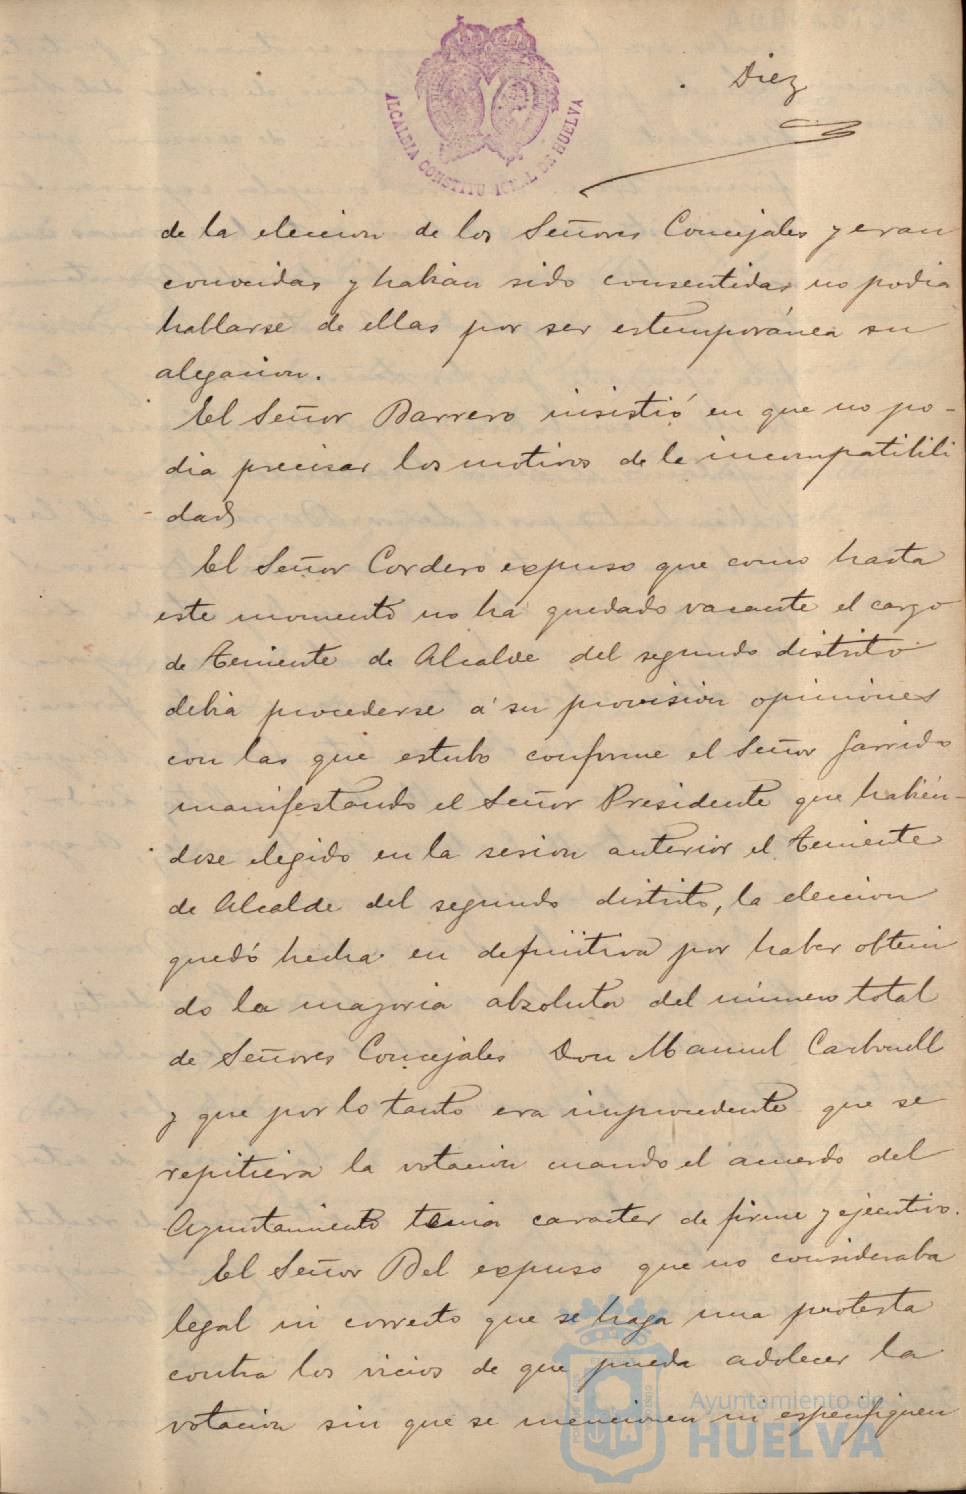 ALCALDIA CONSTITUCIONAL DE HUELVA
Diez
de la eleccion de los Señores Concejales y eran
conocidas y habian sido consentidas no podia
hablarse de ellas por ser estemporánea su
alegacion.
El Señor Barrero insistió en que no po-
dia precisar los motivos de la incompatibili
dad
El Señor Cordero expuso que como hasta
este momento no ha quedado vacante el cargo
de Teniente de Alcalde del segundo distrito
debia procederse á su provision opiniones
con las que estubo conforme el Señor Garrido
manifestando el Señor Presidente que habién-
dose elegido en la sesion anterior el Teniente
de Alcalde del segundo distrito, la eleccion
quedó hecha en definitiva por haber obteni
do la mayoria absoluta del número total
de Señores Concejales Don Manuel Carbonell
y que por lo tanto era improcedente que se
repitiera la votacion cuando el acuerdo del
Ayuntamiento tenia caracter de firme y ejecutivo.
El Señor Bel expuso que no consideraba
legal ni correcto que se haga una protesta
contra los vicios de que pueda adolecer la
votacion sin que se mencionen ni especifiquen
Ayuntamiento de
HUELVA